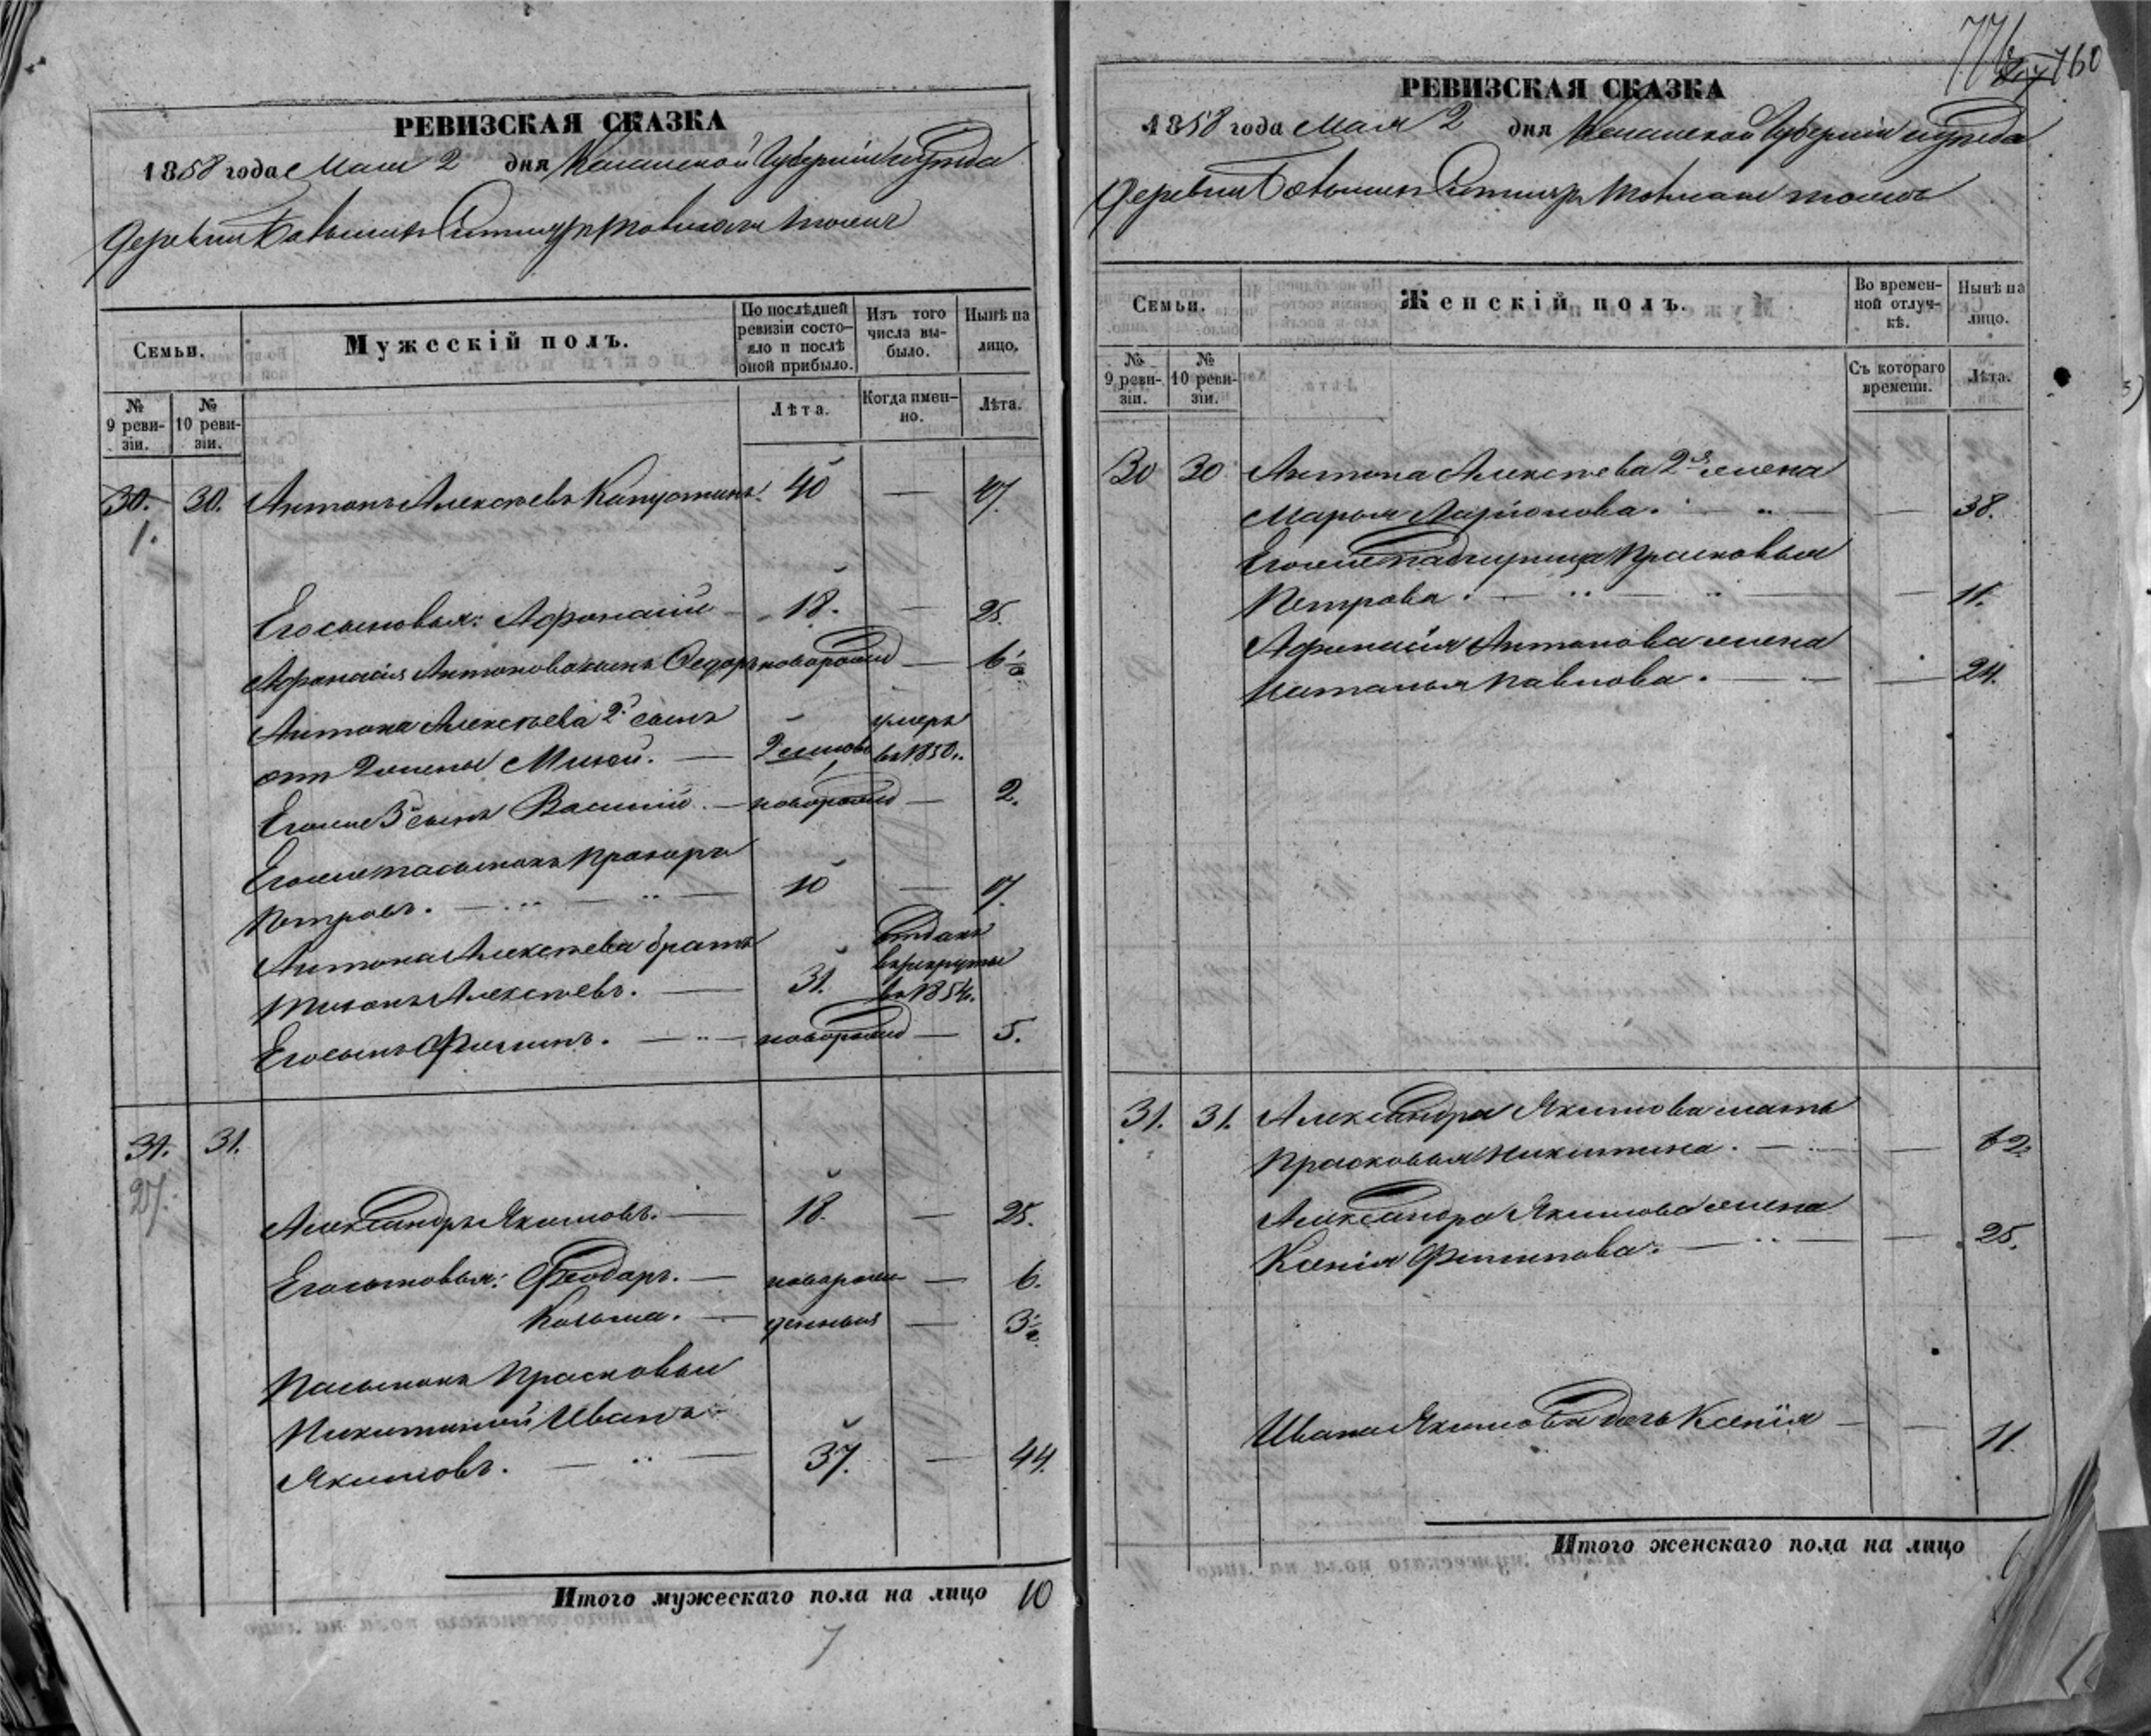 РЕВИЗСКАЯ СКАЗКА
1858 года Мая 2 дня Казанской Губерніи и уѣзда
Деревни
Семьи.
Мужескій полъ.
По послѣдней ревизіи состояло и послѣ оной прибыло.
Изъ того числа выбыло.
Нынѣ на лицо.
№ 9 ревизіи.
№ 10 ревизіи.
Лѣта.
Когда именно.
Лѣта.
30. 30. Антонъ Алексѣевъ Капустинъ. 40 — 47.
1.
Его сыновья: Афонасій 18. — 25.
Афонасія Антонова сынъ Ѳедоръ новорожд — 6 1/2
Антона Алексѣева 2й сынъ умеръ
от 2 жены — въ 1850.
Его же 3й сынъ Василій. — новорожд — 2.
Его же пасынокъ Прокоръ
Петровъ. — 10 — 17.
Антона Алексѣева братъ отданъ
Алексѣевъ. — 31. в рекруты
въ 1854.
Его сынъ Филипъ. — новорожд — 5.
31. 31.
27.
Александръ Якимовъ. — 18. — 25.
Его сыновья: Ѳеодоръ. — новорож — 6.
Козьма. — денныя — 3 1/2
Пасынокъ Прасковьи
Никитиной Иванъ
Якимовъ. — 37. — 44.
Итого мужескаго пола на лицо 10
7
776 160
РЕВИЗСКАЯ СКАЗКА
1858 года Мая 2 дня Казанской Губерніи и уѣзда
Деревни
Семьи.
Женскій полъ.
Во временной отлучкѣ.
Нынѣ на лицо.
№ 9 ревизіи.
№ 10 ревизіи.
Съ котораго времени.
Лѣта.
30 30 Антона Алексѣева 2я жена
Марья Ларіонова. — 38.
Его же падчерица Прасковья
Петрова. — 11.
Афонасія Антонова жена
Наталья Павлова. — 24.
31. 31. Александра Якимова мать
Прасковья Никитина. — 62.
Александра Якимова жена
Ксенія Филипова. — 25.
Ивана Якимова дочь Ксенія — 11.
Итого женскаго пола на лицо 6